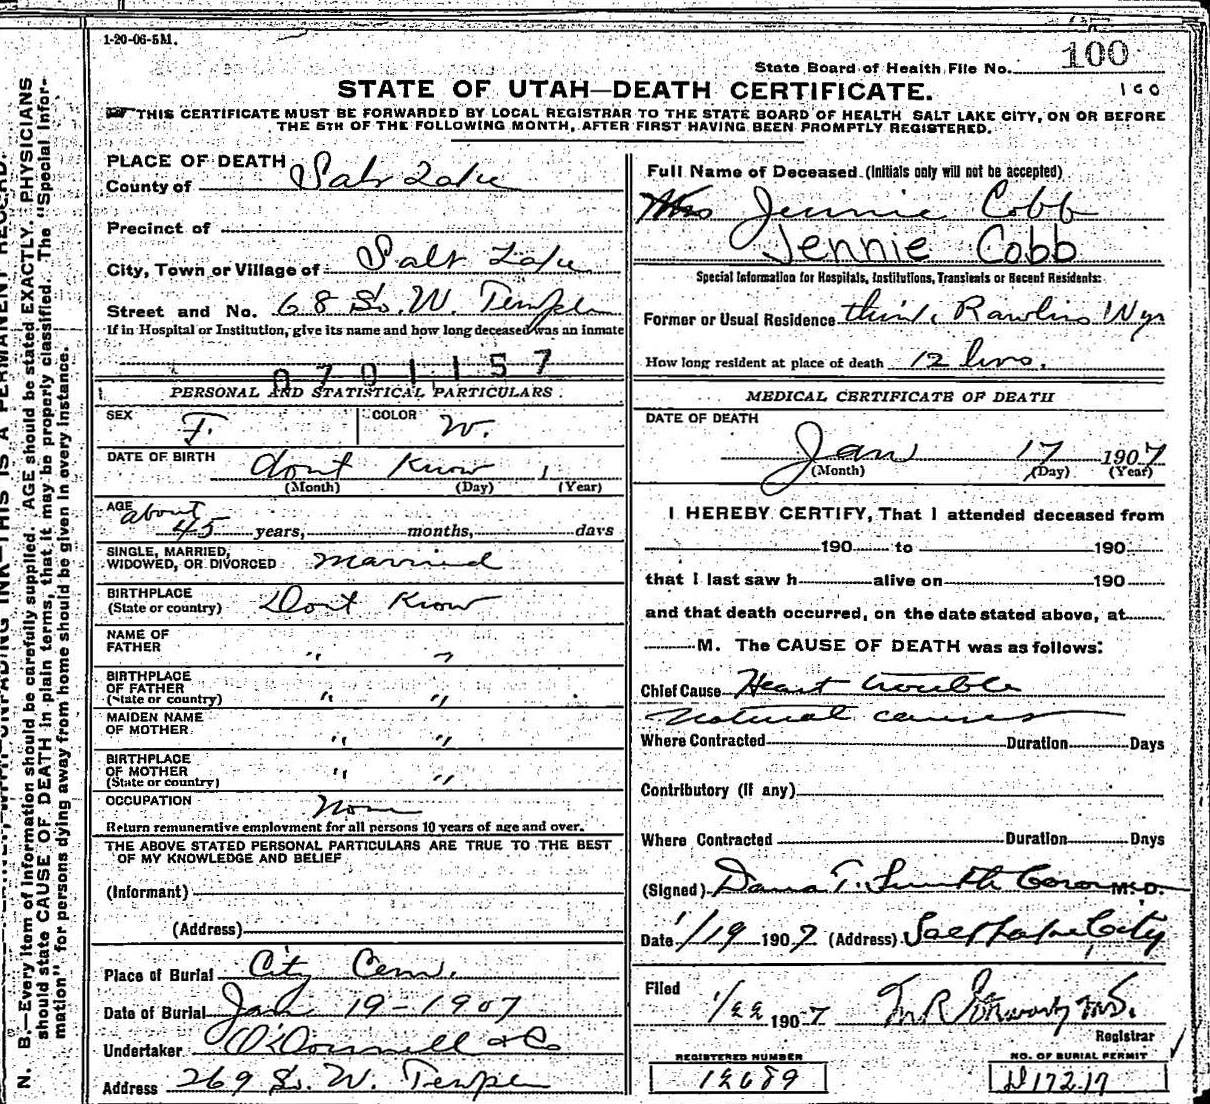 1-20-06-5M.
State Board of Health File No. 100
100
STATE OF UTAH—DEATH CERTIFICATE.
THIS CERTIFICATE MUST BE FORWARDED BY LOCAL REGISTRAR TO THE STATE BOARD OF HEALTH SALT LAKE CITY, ON OR BEFORE
THE 5TH OF THE FOLLOWING MONTH, AFTER FIRST HAVING BEEN PROMPTLY REGISTERED.
PLACE OF DEATH
County of Salt Lake
Precinct of
City, Town or Village of Salt Lake
Street and No. 68 So. W. Temple
If in Hospital or Institution, give its name and how long deceased was an inmate
0701157
PERSONAL AND STATISTICAL PARTICULARS.
SEX F. COLOR W.
DATE OF BIRTH dont Know 1
(Month) (Day) (Year)
AGE about
45 years, months, days
SINGLE, MARRIED,
WIDOWED, OR DIVORCED married
BIRTHPLACE
(State or country) Dont Know
NAME OF
FATHER " "
BIRTHPLACE
OF FATHER
(State or country) " "
MAIDEN NAME
OF MOTHER " "
BIRTHPLACE
OF MOTHER
(State or country) " "
OCCUPATION None
Return remunerative employment for all persons 10 years of age and over.
THE ABOVE STATED PERSONAL PARTICULARS ARE TRUE TO THE BEST
OF MY KNOWLEDGE AND BELIEF
(Informant)
(Address)
Place of Burial City Cem.
Date of Burial Jan 19-1907
Undertaker O'Donnell & Co
Address 269 So. W. Temple
Full Name of Deceased (Initials only will not be accepted)
Mrs Jennie Cobb
Jennie Cobb
Special Information for Hospitals, Institutions, Transients or Recent Residents:
Former or Usual Residence think Rawlins Wyo
How long resident at place of death 12 hrs.
MEDICAL CERTIFICATE OF DEATH
DATE OF DEATH
Jan 17 1907
(Month) (Day) (Year)
I HEREBY CERTIFY, That I attended deceased from
190 to 190
that I last saw h alive on 190
and that death occurred, on the date stated above, at
M. The CAUSE OF DEATH was as follows:
Chief Cause Heart trouble
Natural causes
Where Contracted Duration Days
Contributory (If any)
Where Contracted Duration Days
(Signed) Dana T. Smith Coroner M.D.
Date 1/19 1907 (Address) Salt Lake City
Filed 1/22 1907 M.D.
Registrar
REGISTERED NUMBER
12689
NO. OF BURIAL PERMIT
D17217
N. B.—Every item of information should be carefully supplied. AGE should be stated EXACTLY. PHYSICIANS
should state CAUSE OF DEATH in plain terms, that it may be properly classified. The "Special Infor-
mation" for persons dying away from home should be given in every instance.